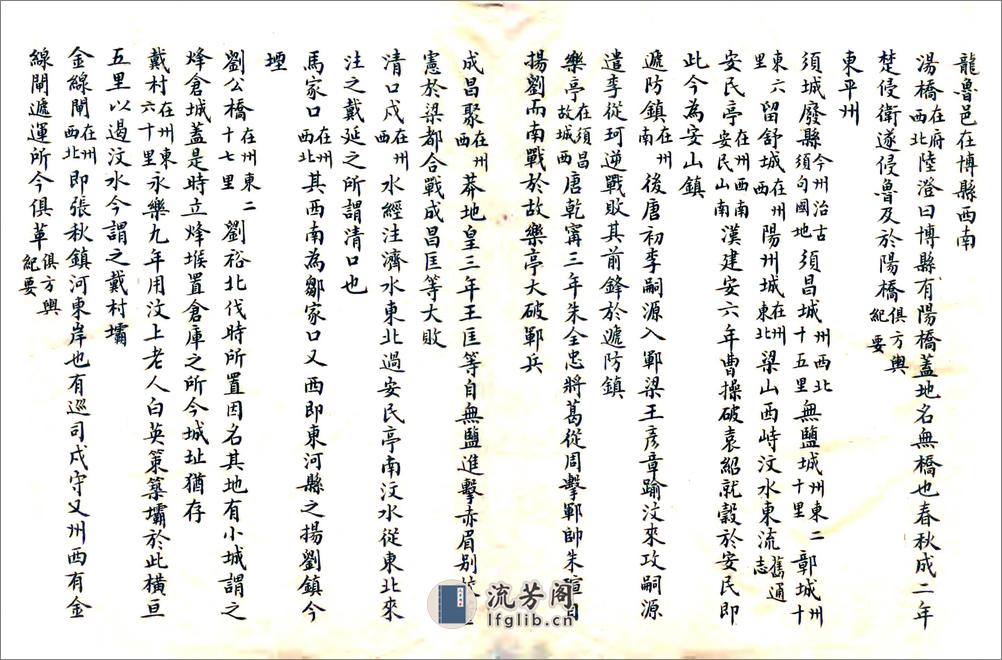 龍魯邑在博縣西南
湯橋在府西北陸澄曰博縣有陽橋蓋地名無橋也春秋成二年
楚侵衛遂侵魯及於陽橋俱方輿紀要
東平州
須城廢縣今州治古須句國地須昌城州西北十五里無鹽城州東二十里鄣城州十
東六里留舒城在州西陽州城在州東北梁山西峙汶水東流舊通志
安民亭在州西南安民山南漢建安六年曹操破袁紹就穀於安民即
此今為安山鎮
遞防鎮在州南後唐初李嗣源入鄆梁王彥章踰汶來攻嗣源
遣李從珂逆戰敗其前鋒於遞防鎮
樂亭在須昌故城西唐乾甯三年朱全忠將葛從周擊鄆帥朱瑄自
揚劉而南戰於故樂亭大破鄆兵
成昌聚在州西莽地皇三年王匡等自無鹽進擊赤眉別
憲於梁都合戰成昌匡等大敗
清口戍在州西水經注濟水東北過安民亭南汶水從東北來
注之戴延之所謂清口也
馬家口在州西北其西南為鄒家口又西即東河縣之揚劉鎮今
堙
劉公橋在州東二十七里劉裕北伐時所置因名其地有小城謂之
烽倉城蓋是時立烽堠置倉庫之所今城址猶存
戴村在州東六十里永樂九年用汶上老人白英策築壩於此橫亘
五里以遏汶水今謂之戴村壩
金線閘在州西北即張秋鎮河東岸也有巡司戍守又州西有金
線閘遞運所今俱革俱方輿紀要
流芳阁
lfglib.cn